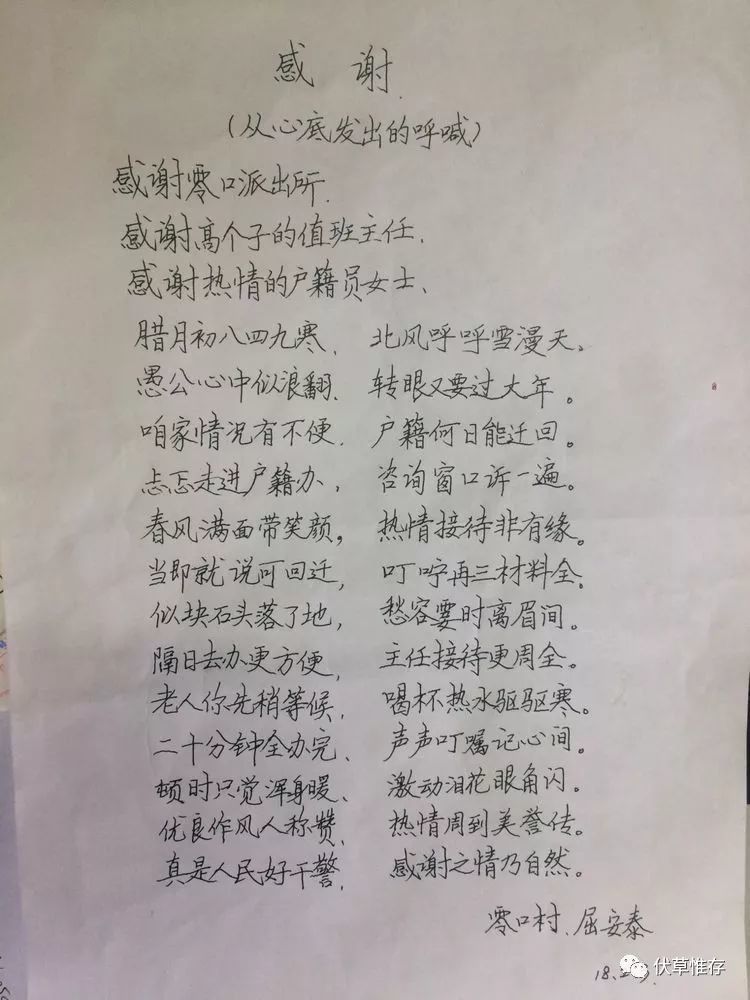 感谢
(从心底发出的呼喊)
感谢零口派出所.
感谢高个子的值班主任.
感谢热情的户籍员女士、
腊月初八四九寒. 北风呼呼雪漫天。
愚公心中似浪翻. 转眼又要过大年。
咱家情况有不便. 户籍何日能迁回。
忐忑走进户籍办, 咨询窗口诉一遍。
春风满面带笑颜, 热情接待非有缘。
当即就说可回迁, 叮咛再三材料全.
似块石头落了地, 愁容要时离眉间。
隔日去办更方便, 主任接待更周全。
老人你先稍等候. 喝杯热水驱驱寒。
二十分钟全办完、 声声叮嘱记心间。
顿时只觉浑身暖、 激动泪花眼角闪。
优良作风人称赞. 热情周到美誉传。
真是人民好干警. 感谢之情乃自然。
零口村、屈安泰
18.
伏草惟存